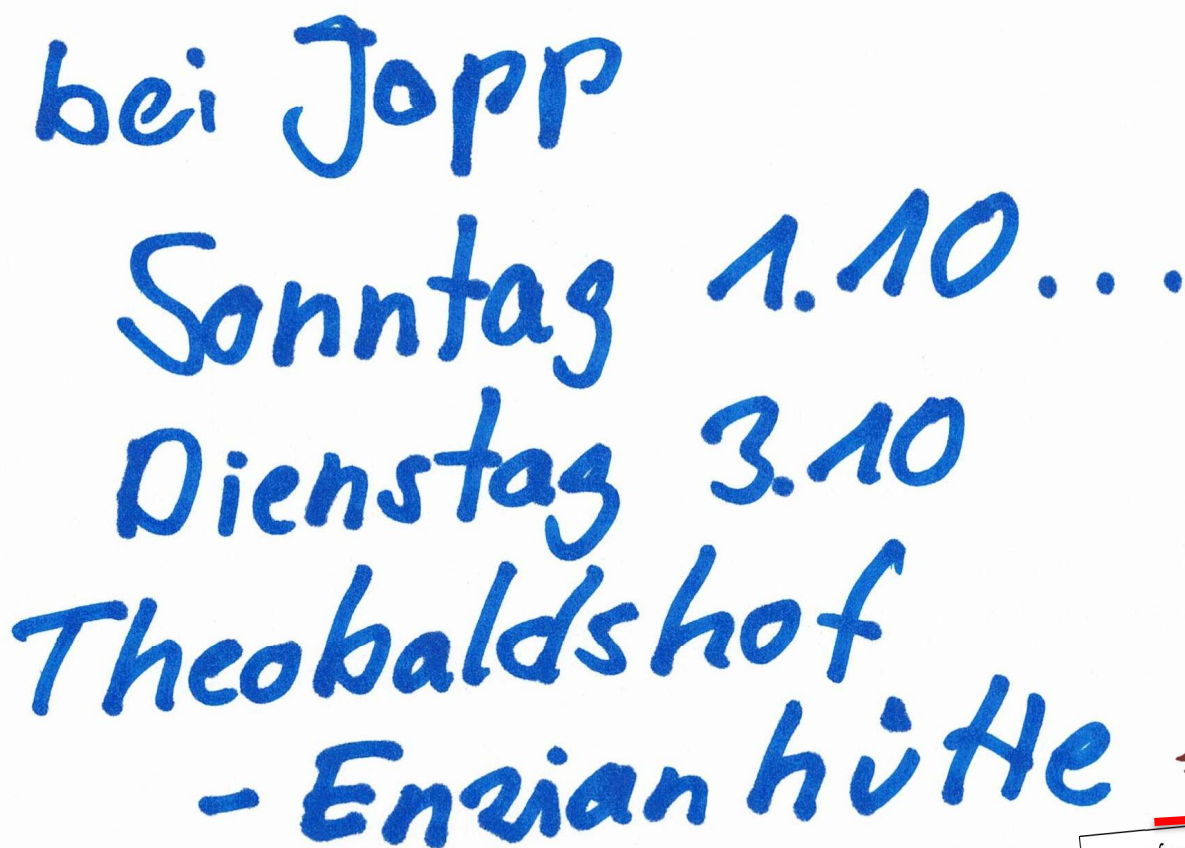 bei Jopp
Sonntag 1.10....
Dienstag 3.10
Theobaldshof
- Enzianhütte